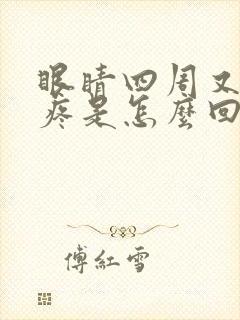 眼睛四周又
疼是怎麼回
傅紅雪